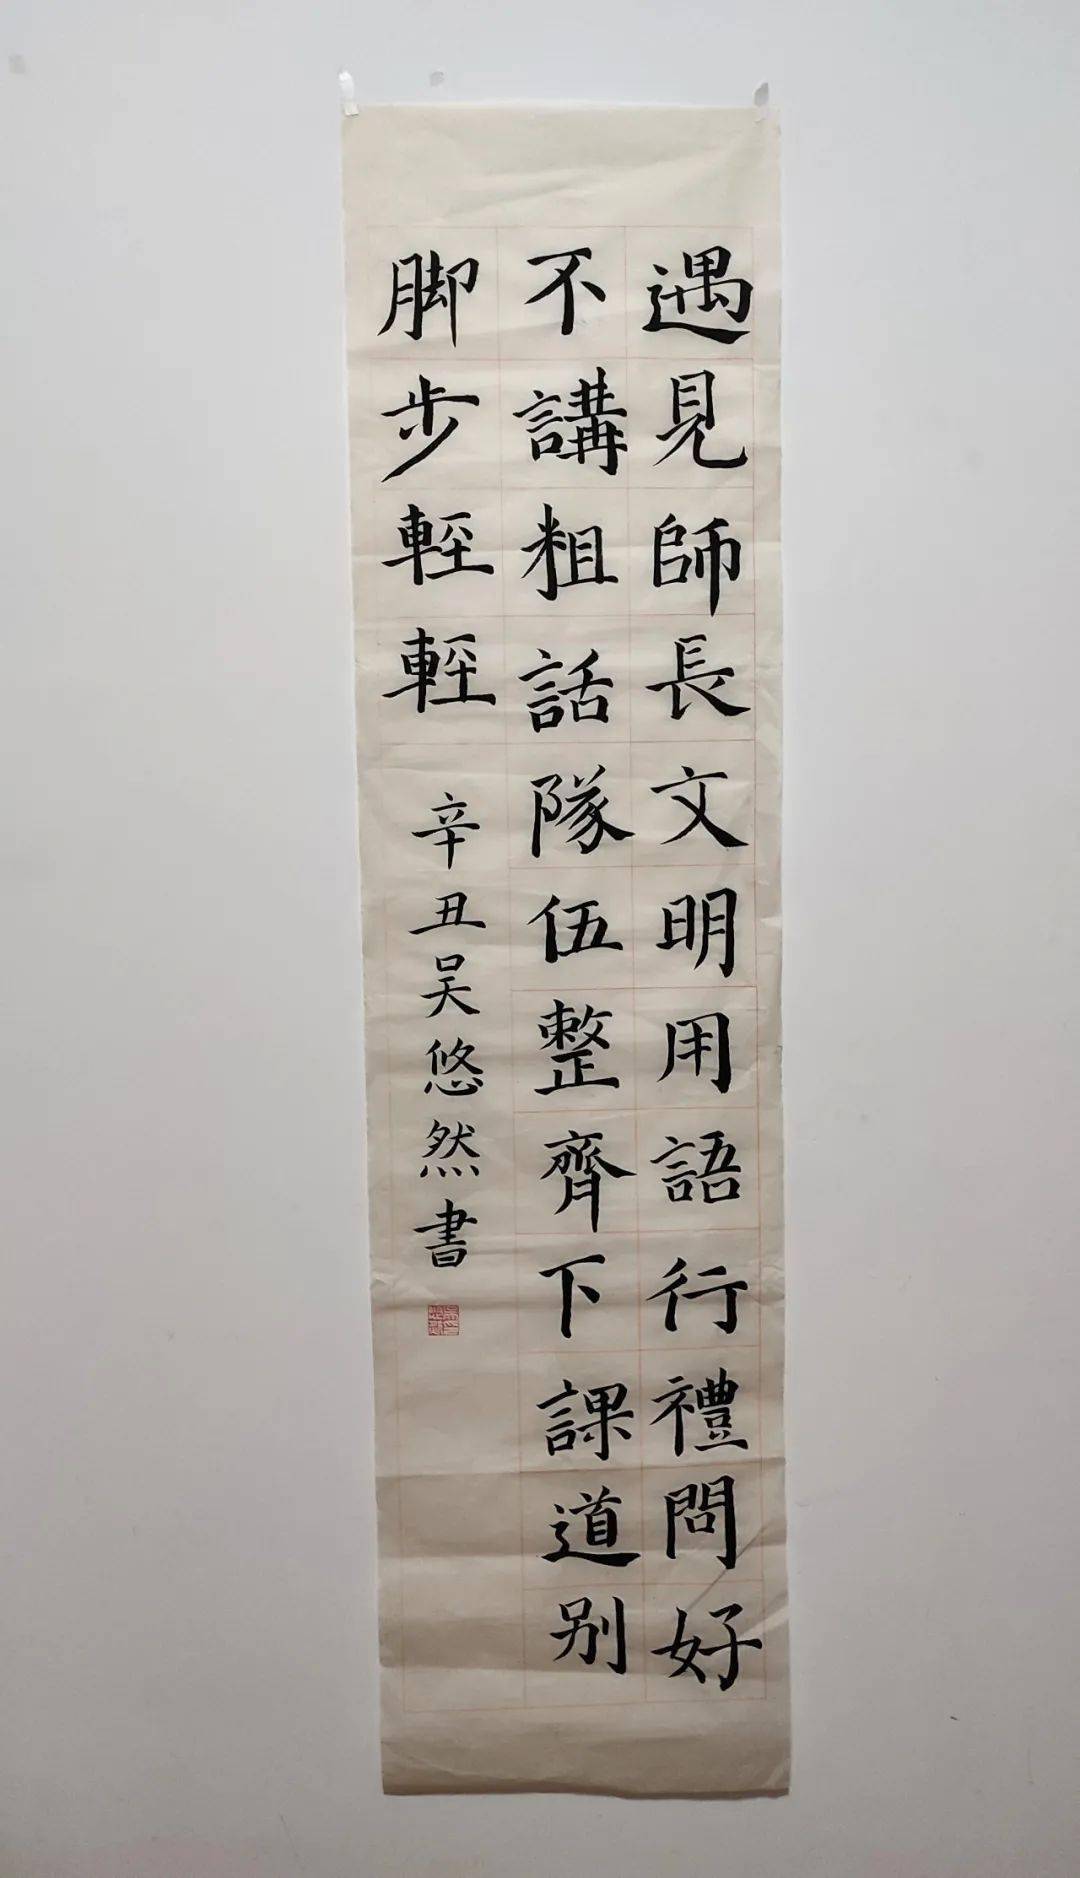 遇見師長文明用語行禮問好
不講粗話隊伍整齊下課道别
脚步輕輕
辛丑吴悠然書